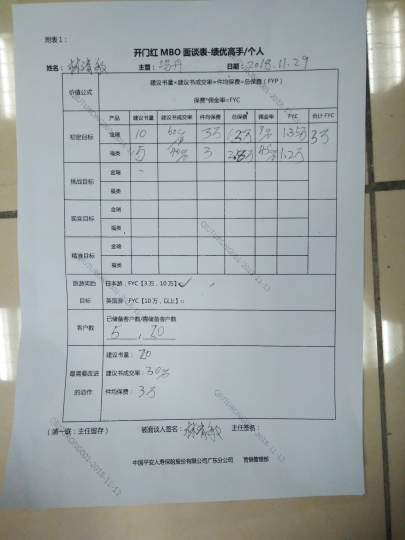 附表1：
开门红 MBO 面谈表-绩优高手/个人
姓名： 主管： 日期：2018.11.29
价值公式
建议书量×建议书成交率×件均保费=总保费（FYP）
保费*佣金率=FYC
产品 建议书量 建议书成交率 件均保费 总保费 佣金率 FYC 合计 FYC
初定目标
金瑞 10 60% 3万
福类 5 3 1.2万
挑战目标
金瑞 -
福类
现实目标
金瑞
福类
精准目标
金瑞
福类
旅游奖励
目标
日本游，FYC【3万，10万】✓
英国游，FYC【10万，以上】□
客户数
已储备客户数/需储备客户数
5，20
最需要改进
的动作
建议书量：20
建议书成交率：30%
件均保费：3万
（第一联：主任留存） 被面谈人签名： 主任签名：
中国平安人寿保险股份有限公司广东分公司 营销管理部